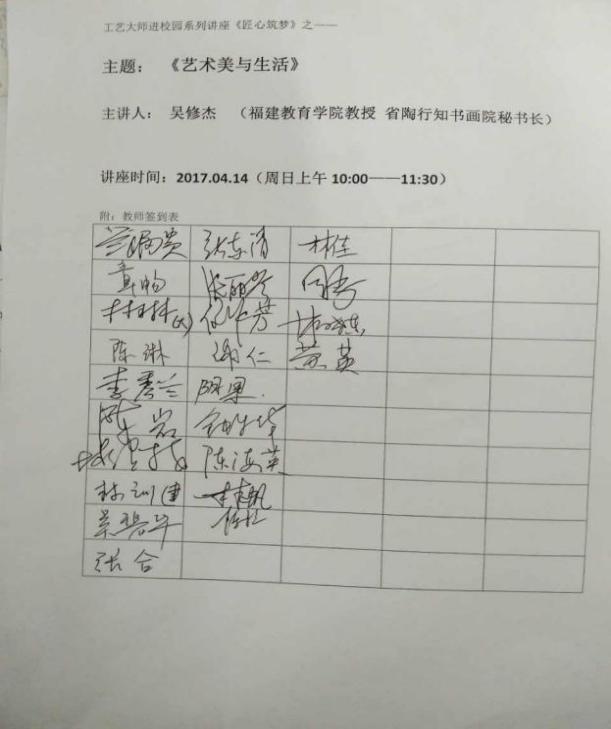 工艺大师进校园系列讲座《匠心筑梦》之——
主题：《艺术美与生活》
主讲人： 吴修杰 （福建教育学院教授 省陶行知书画院秘书长）
讲座时间：2017.04.14（周日上午 10:00——11:30）
附：教师签到表
张东清 林佳
章畅 张丽琴
陈琳 谢仁 黄英
李秀兰 阳果
陈岩
陈海英
林训建
张合